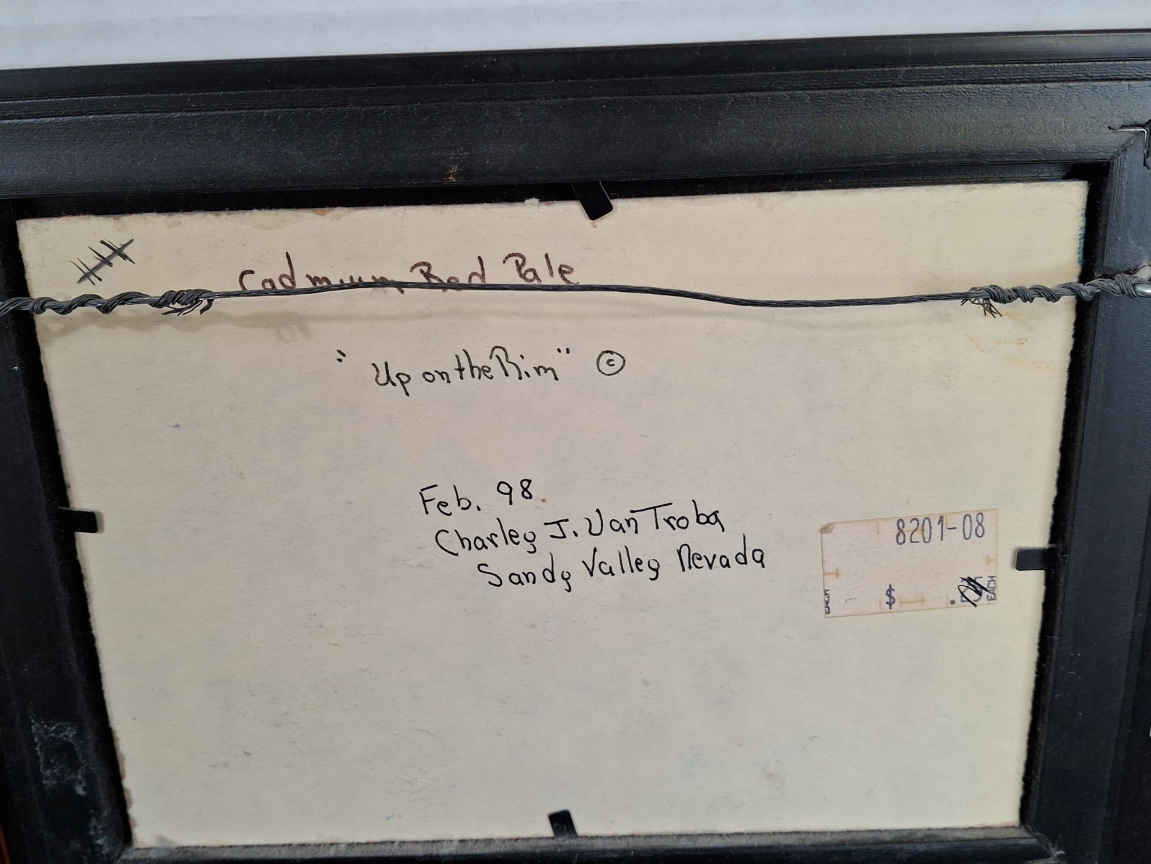 Cadmium Red Pale
"Up on the Rim" ©
Feb. 98.
Charley J. Van Troba
Sandy Valley Nevada
8201-08
$ .
EACH